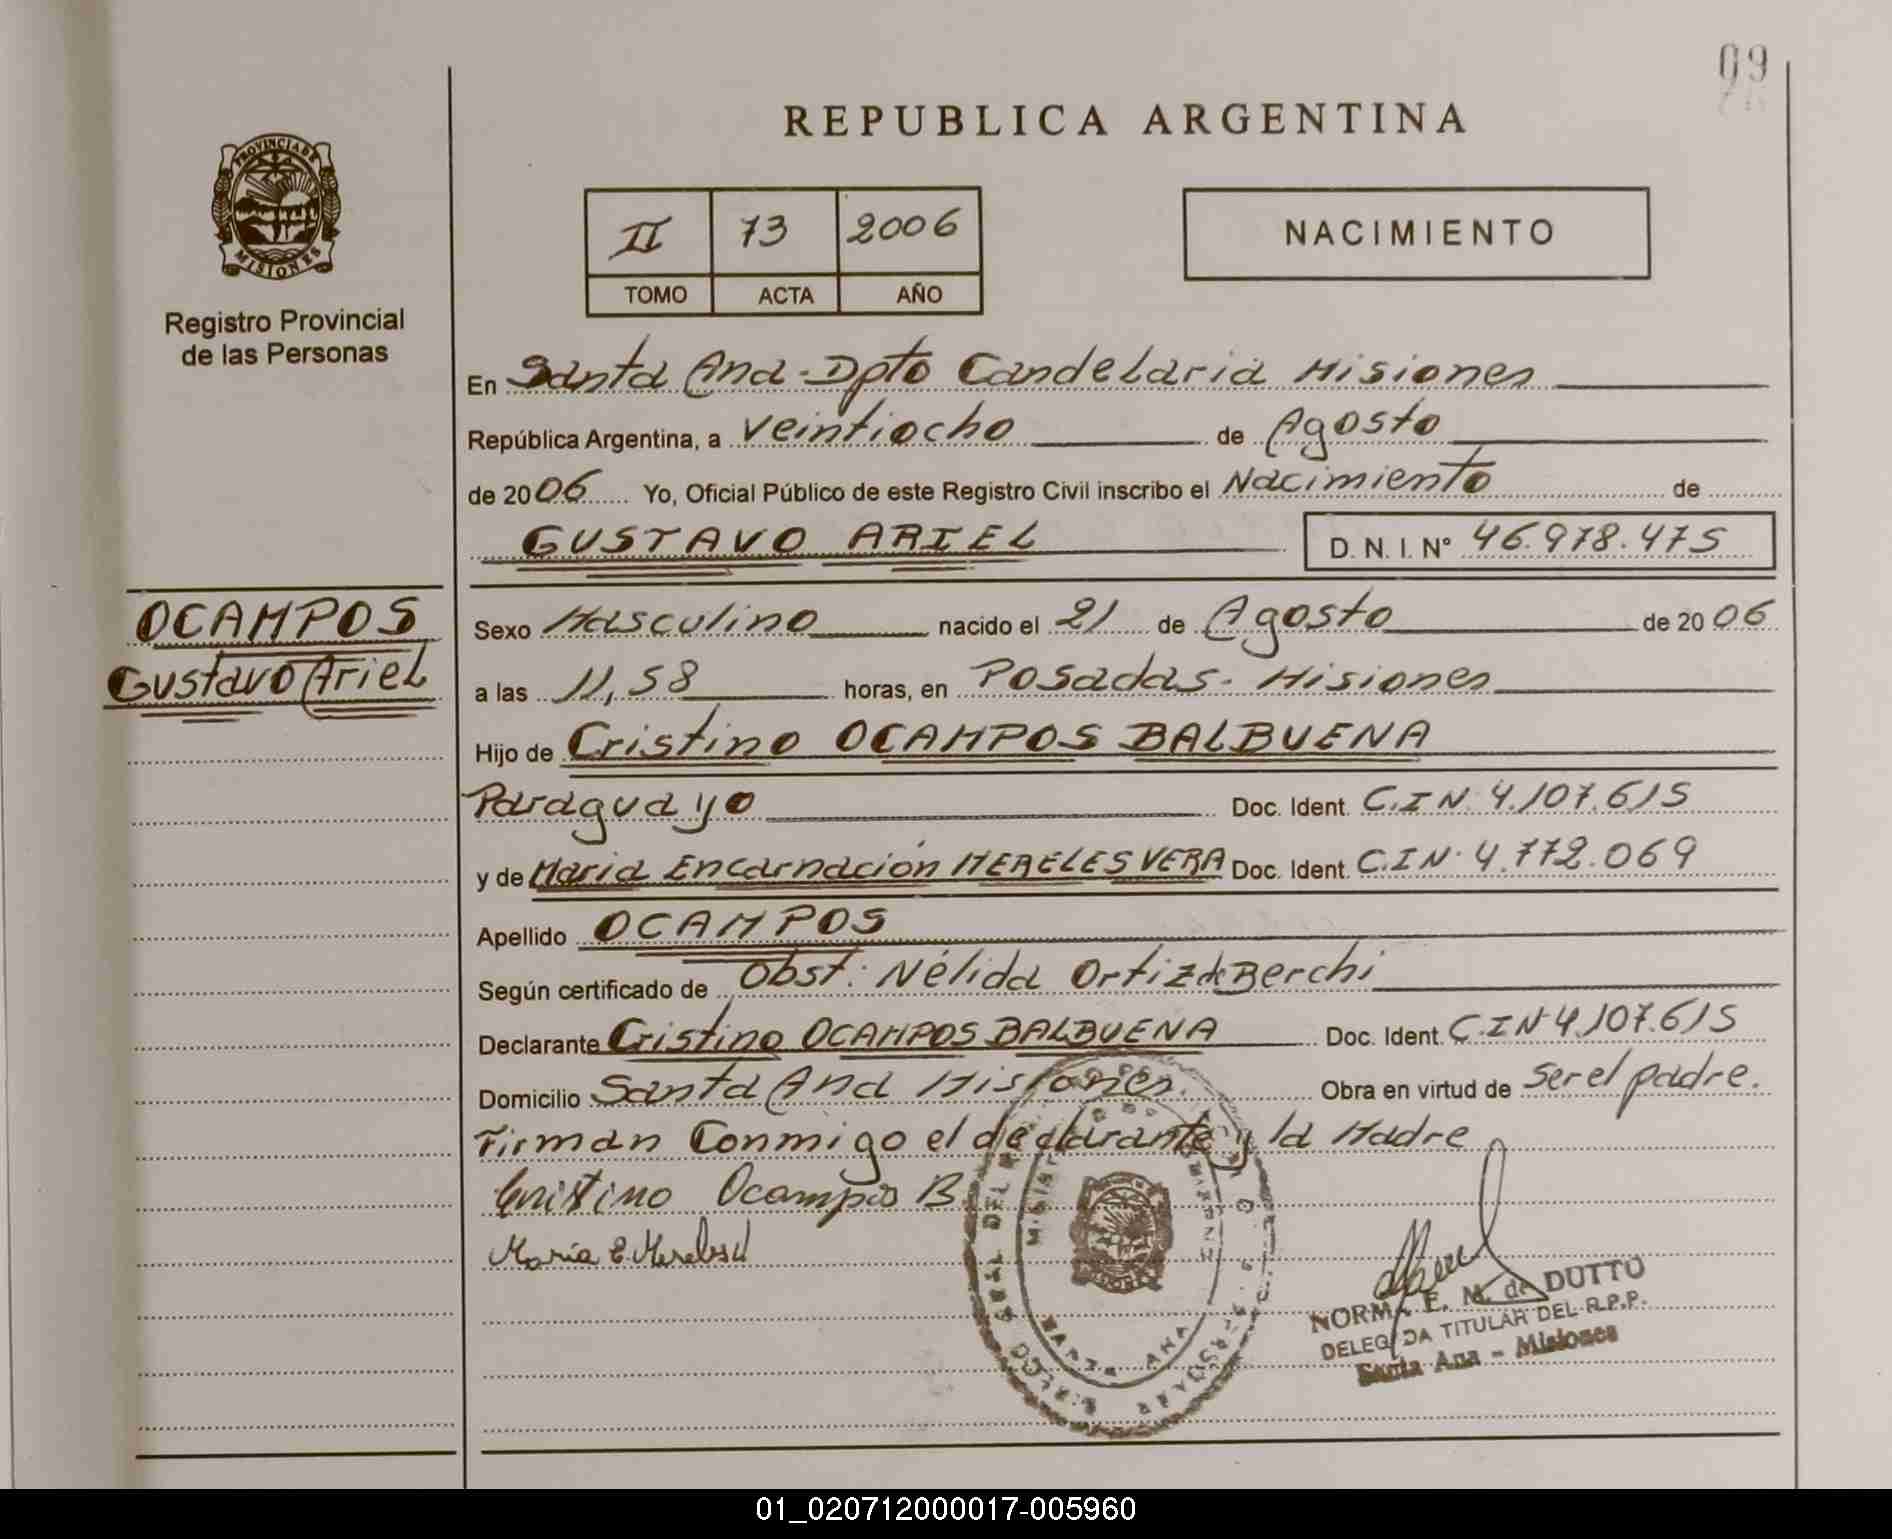 09
REPUBLICA ARGENTINA
PROVINCIA DE
MISIONES
Registro Provincial
de las Personas
II 73 2006
TOMO ACTA AÑO
NACIMIENTO
En Santa Ana - Dpto Candelaria Misiones
República Argentina, a veintiocho de Agosto
de 2006 Yo, Oficial Público de este Registro Civil inscribo el Nacimiento de
GUSTAVO ARIEL D. N. I. Nº 46.978.475
OCAMPOS
Gustavo Ariel
Sexo Masculino nacido el 21 de Agosto de 2006
a las 11,58 horas, en Posadas - Misiones
Hijo de Cristino OCAMPOS BALBUENA
Paraguayo Doc. Ident. C.I N 4.107.615
y de Maria Encarnación MERELES VERA Doc. Ident. C.I N. 4.772.069
Apellido OCAMPOS
Según certificado de Obst: Nélida Ortiz de Berchi
Declarante Cristino OCAMPOS BALBUENA Doc. Ident. C.I N 4.107.615
Domicilio Santa Ana Misiones Obra en virtud de ser el padre.
Firman Conmigo el declarante y la Madre
Cristino Ocampos B
Maria E. Mereles
NORMA E. M. de DUTTO
DELEGADA TITULAR DEL R.P.P.
Santa Ana - Misiones
01_020712000017-005960